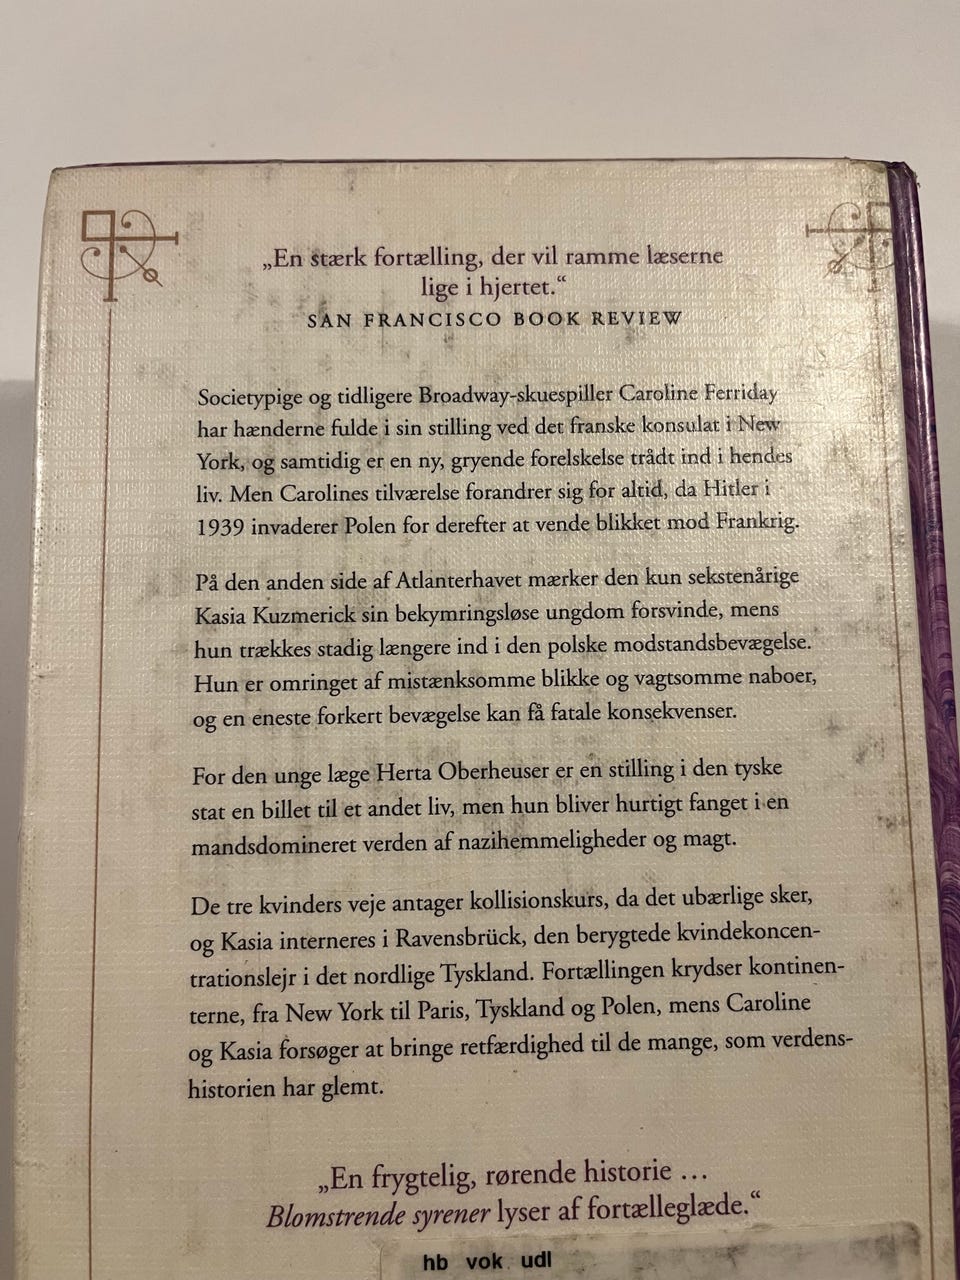 „En stærk fortælling, der vil ramme læserne
lige i hjertet.“
SAN FRANCISCO BOOK REVIEW
Societypige og tidligere Broadway-skuespiller Caroline Ferriday
har hænderne fulde i sin stilling ved det franske konsulat i New
York, og samtidig er en ny, gryende forelskelse trådt ind i hendes
liv. Men Carolines tilværelse forandrer sig for altid, da Hitler i
1939 invaderer Polen for derefter at vende blikket mod Frankrig.
På den anden side af Atlanterhavet mærker den kun sekstenårige
Kasia Kuzmerick sin bekymringsløse ungdom forsvinde, mens
hun trækkes stadig længere ind i den polske modstandsbevægelse.
Hun er omringet af mistænksomme blikke og vagtsomme naboer,
og en eneste forkert bevægelse kan få fatale konsekvenser.
For den unge læge Herta Oberheuser er en stilling i den tyske
stat en billet til et andet liv, men hun bliver hurtigt fanget i en
mandsdomineret verden af nazihemmeligheder og magt.
De tre kvinders veje antager kollisionskurs, da det ubærlige sker,
og Kasia interneres i Ravensbrück, den berygtede kvindekoncen-
trationslejr i det nordlige Tyskland. Fortællingen krydser kontinen-
terne, fra New York til Paris, Tyskland og Polen, mens Caroline
og Kasia forsøger at bringe retfærdighed til de mange, som verdens-
historien har glemt.
„En frygtelig, rørende historie ...
Blomstrende syrener lyser af fortælleglæde.“
hb vok udl